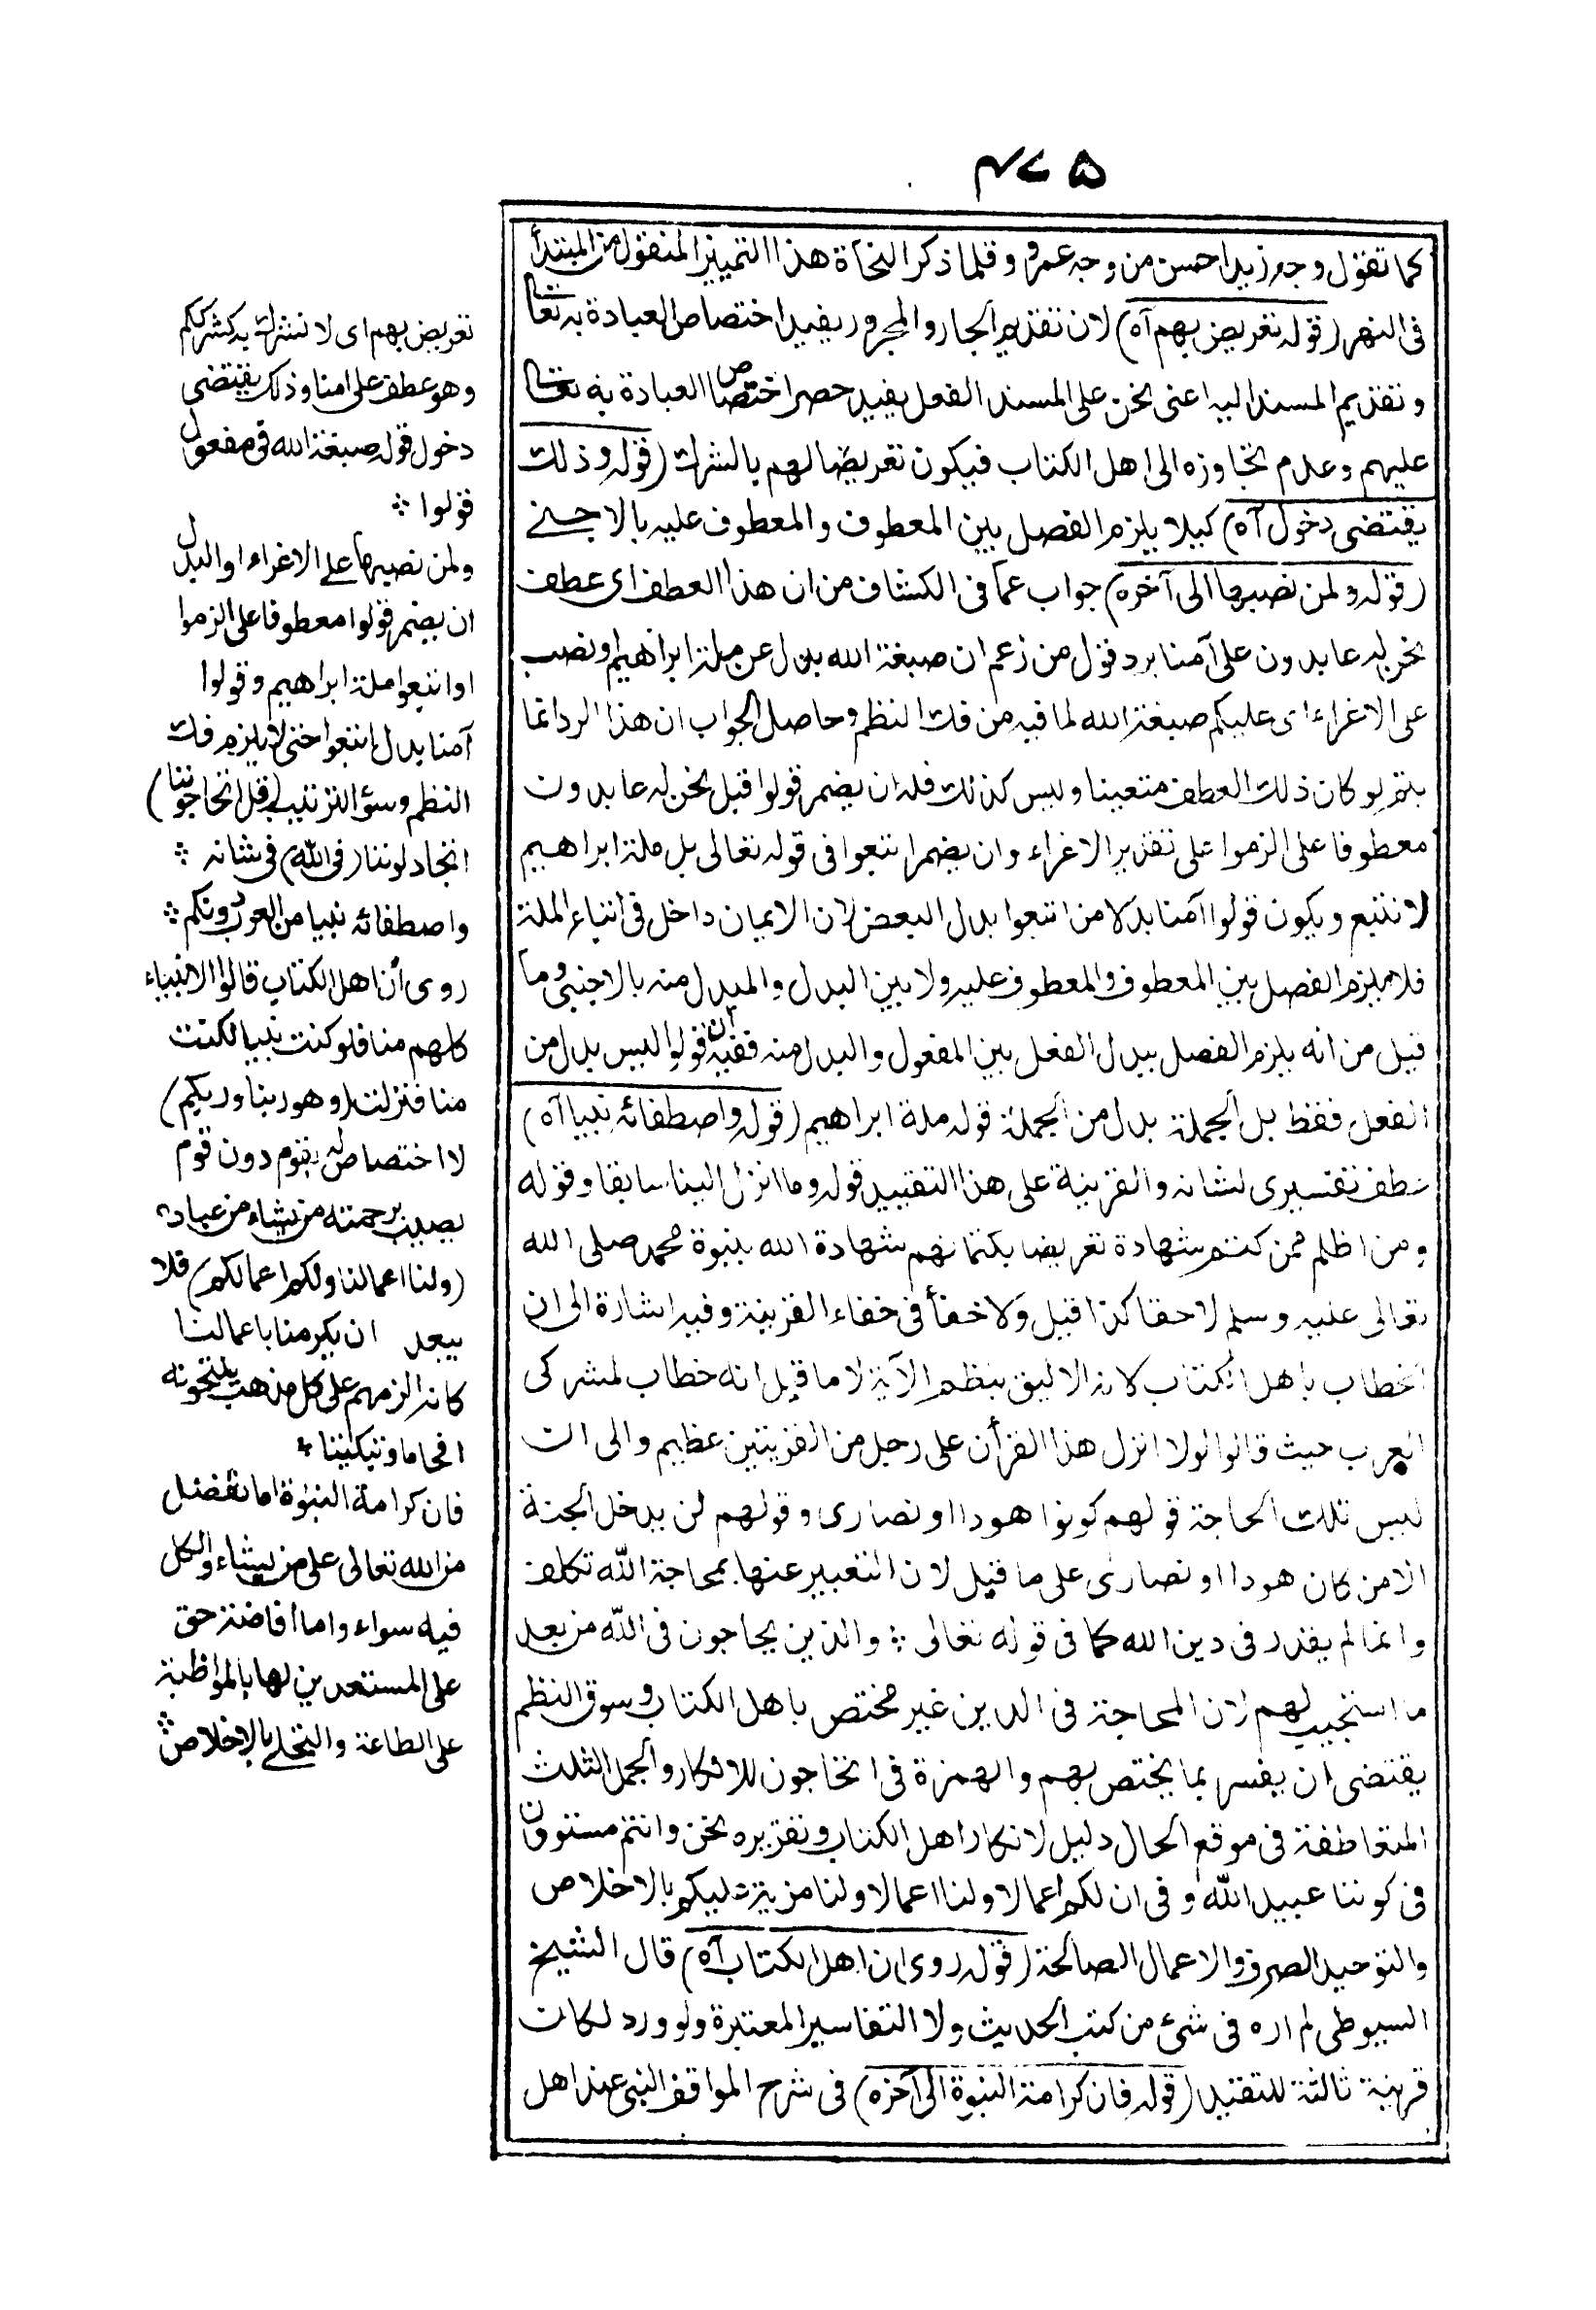 ٤٧٥
كما تقول وجه زيد احسن من وجه عمرو وقلما ذكر النحاة هذا التمييز المنقول من المبتدأ
فى النهر (قوله تعريض بهم آه) لان تقديم الجار والمجرور يفيد اختصاص العبادة به تعا
وتقديم المسند اليه اعنى نحن على المسند الفعل يفيد حصر اختصاص العبادة به تعا
عليهم وعدم تجاوزه الى اهل الكتاب فيكون تعريضا لهم بالشرك (قوله وذلك
يقتضى دخول آه) كيلا يلزم الفصل بين المعطوف والمعطوف عليه بالاجنبى
(قوله ولمن نصبها الى آخره) جواب عما فى الكشاف من ان هذا العطف اى عطف
نحن له عابدون على آمنا يرد قول من زعم ان صبغة الله بدل عن ملة ابراهيم او نصب
على الاغراء اى عليكم صبغة الله لما فيه من فك النظم وحاصل الجواب ان هذا الرد انما
يتم لو كان ذلك العطف متعينا وليس كذلك فله ان يضمر قولوا قبل نحن له عابدون
معطوفا على الزموا على تقدير الاغراء وان يضمر اتبعوا فى قوله تعالى بل ملة ابراهيم
لا نتبع ويكون قولوا آمنا بدلا من اتبعوا بدل البعض لان الايمان داخل فى اتباع الملة
فلا يلزم الفصل بين المعطوف والمعطوف عليه ولا بين البدل والمبدل منه بالاجنبى وما
قيل من انه يلزم الفصل ببدل الفعل بين المفعول والبدل منه ففيه ان قولوا ليس بدل من
الفعل فقط بل الجملة بدل من الجملة قوله ملة ابراهيم (قوله واصطفائه نبيا آه)
عطف تفسيرى لشانه والقرينة على هذا التقييد قوله وما انزل الينا سابقا وقوله
ومن اظلم ممن كتم شهادة تعريضا بكتمانهم شهادة الله بنبوة محمد صلى الله
تعالى عليه وسلم لاحقا كذا قيل ولا خفأ فى خفاء القرينة وفيه اشارة الى ان
الخطاب باهل الكتاب لانه الاليق بنظم الآية لا ما قيل انه خطاب لمشركى
العرب حيث قالوا لولا انزل هذا القرأن على رجل من القريتين عظيم والى ان
ليس تلك المحاجة قولهم كونوا هودا او نصارى وقولهم لن يدخل الجنة
الا من كان هودا او نصارى على ما قيل لان التعبير عنها بمحاجة الله تكلف
وانما لم يقدر فى دين الله كما فى قوله تعالى ؞ والذين يحاجون فى الله من بعد
ما استجيب لهم لان المحاجة فى الدين غير مختص باهل الكتاب وسوق النظم
يقتضى ان يفسر بما يختص بهم والهمزة فى اتحاجون للانكار والجمل الثلث
المتعاطفة فى موقع الحال دليل لانكار اهل الكتاب وتقريره نحن وانتم مستوون
فى كوننا عبيد الله وفى ان لكم اعمالا ولنا اعمالا ولنا مزية عليكم بالاخلاص
والتوحيد الصرف والاعمال الصالحة (قوله روى ان اهل الكتاب آه) قال الشيخ
السيوطى لم اره فى شئ من كتب الحديث ولا التفاسير المعتبرة ولو ورد لكان
قرينة ثالثة للتقييد (قوله فان كرامة النبوة الى آخره) فى شرح المواقف النبى عند اهل
تعريض بهم اى لا نشرك به كشرككم
وهو عطف على امنا وذلك يقتضى
دخول قوله صبغة الله فى مفعول
قولوا ؞
ولمن نصبها على الاغراء او البدل
ان يضمر قولوا معطوفا على الزموا
او اتبعوا ملة ابراهيم وقولوا
آمنا بدل اتبعوا حتى لا يلزم فك
النظم وسؤ الترتيب (قل اتحاجوننا)
اتجادلوننا (فى الله) فى شانه ؞
واصطفائه نبيا من العرب دونكم ؞
روى أن اهل الكتاب قالوا الانبياء
كلهم منا فلو كنت نبيا لكنت
منا فنزلت (وهو ربنا وربكم)
لا اختصاص له بقوم دون قوم
يصيب برحمته من يشاء من عباده
(ولنا اعمالنا ولكم اعمالكم) فلا
يبعد ان يكرمنا باعمالنا
كانه الزمهم على كل مذهب ينتحونه
افحاما وتبكيتا ؞
فان كرامة النبوة اما تفضل
من الله تعالى على من يشاء والكل
فيه سواء واما افاضة حق
على المستعدين لها بالمواظبة
على الطاعة والتحلى بالاخلاص ؞